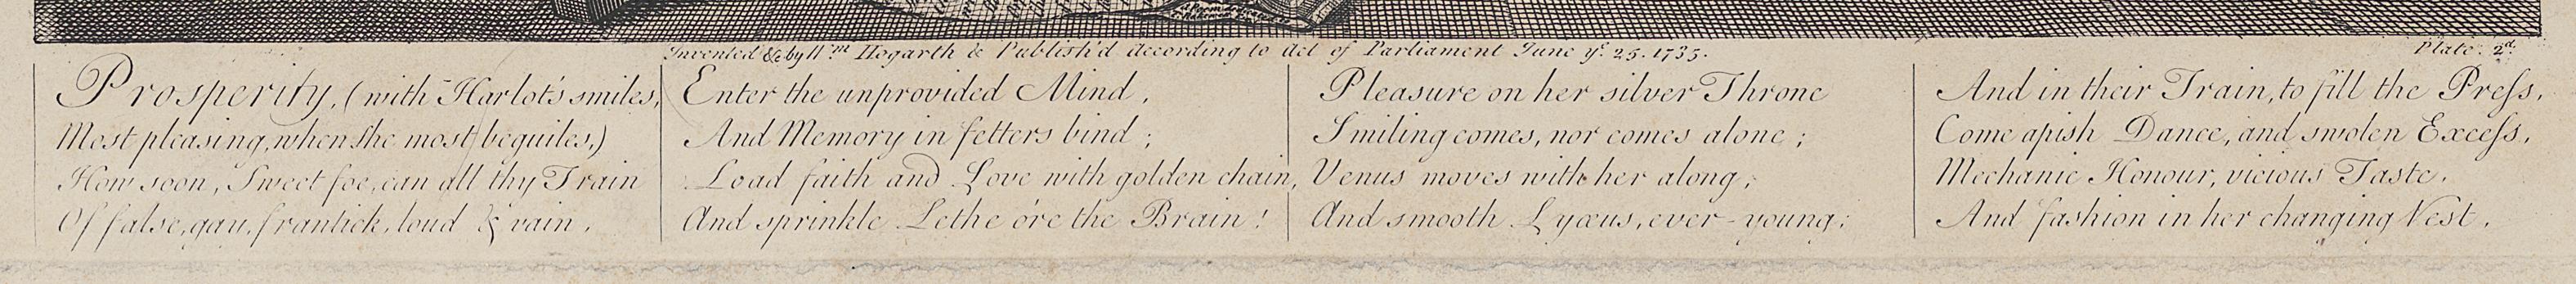 Invented &c by Wm. Hogarth & Publish'd According to Act of Parliament June ye. 25. 1735.
Plate. 2d.
Prosperity, (with Harlot's smiles,
Most pleasing, when she most beguiles,)
How soon, Sweet foe, can all thy Train
Of false, gay, frantick, loud & vain,
Enter the unprovided Mind,
And Memory in fetters bind;
Load faith and Love with golden chain,
And sprinkle Lethe o're the Brain!
Pleasure on her silver Throne
Smiling comes, nor comes alone;
Venus moves with her along,
And smooth Lyæus, ever-young;
And in their Train, to fill the Preſs,
Come apish Dance, and swolen Exceſs,
Mechanic Honour, vicious Taste,
And fashion in her changing Vest.